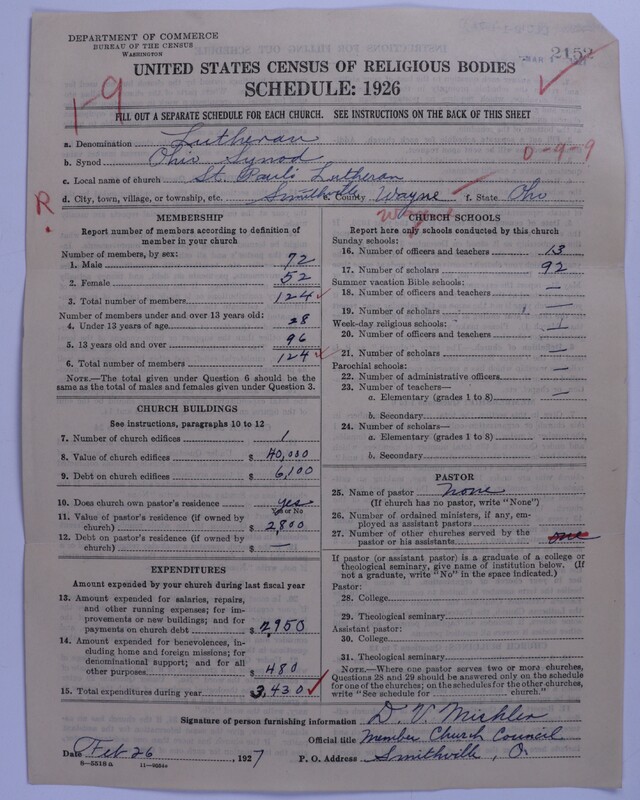 DEPARTMENT OF COMMERCE
BUREAU OF THE CENSUS
WASHINGTON
MAR 2152
UNITED STATES CENSUS OF RELIGIOUS BODIES
SCHEDULE: 1926
1-9
FILL OUT A SEPARATE SCHEDULE FOR EACH CHURCH. SEE INSTRUCTIONS ON THE BACK OF THIS SHEET
a. Denomination Lutheran
b. Synod Ohio Synod
0-9-9
c. Local name of church St. Pauls Lutheran
d. City, town, village, or township, etc. Smithville e. County Wayne f. State Ohio
R.
MEMBERSHIP
Report number of members according to definition of
member in your church
Number of members, by sex:
1. Male 72
2. Female 52
3. Total number of members 124
Number of members under and over 13 years old:
4. Under 13 years of age 28
5. 13 years old and over 96
6. Total number of members 124
NOTE.—The total given under Question 6 should be
same as the total of males and females given under Question 3.
CHURCH BUILDINGS
See instructions, paragraphs 10 to 12
7. Number of church edifices 1
8. Value of church edifices $ 40,000
9. Debt on church edifices $ 6,100
10. Does church own pastor's residence yes
Yes or No
11. Value of pastor's residence (if owned by
church) $ 2,800
12. Debt on pastor's residence (if owned by
church) $ —
EXPENDITURES
Amount expended by your church during last fiscal year
13. Amount expended for salaries, repairs,
and other running expenses; for im-
provements or new buildings; and for
payments on church debt $ 2,950
14. Amount expended for benevolences, in-
cluding home and foreign missions; for
denominational support; and for all
other purposes $ 480
15. Total expenditures during year 3,430
CHURCH SCHOOLS
Report here only schools conducted by this church
Sunday schools:
16. Number of officers and teachers 13
17. Number of scholars 92
Summer vacation Bible schools:
18. Number of officers and teachers —
19. Number of scholars —
Week-day religious schools:
20. Number of officers and teachers —
21. Number of scholars —
Parochial schools:
22. Number of administrative officers —
23. Number of teachers—
a. Elementary (grades 1 to 8) —
b. Secondary
24. Number of scholars—
a. Elementary (grades 1 to 8)
b. Secondary
PASTOR
25. Name of pastor None
(If church has no pastor, write "None")
26. Number of ordained ministers, if any, em-
ployed as assistant pastors
27. Number of other churches served by the
pastor or his assistants one
If pastor (or assistant pastor) is a graduate of a college or
theological seminary, give name of institution below. (If
not a graduate, write "No" in the space indicated.)
Pastor:
28. College
29. Theological seminary
Assistant pastor:
30. College
31. Theological seminary
NOTE.—Where one pastor serves two or more churches,
Questions 28 and 29 should be answered only on the schedule
for one of the churches; on the schedules for the other churches,
write "See schedule for church."
Signature of person furnishing information D. V. Mishler
Official title Member Church Council
Date Feb 26, 1927 P. O. Address Smithville, O.
8—5518a 11—9554